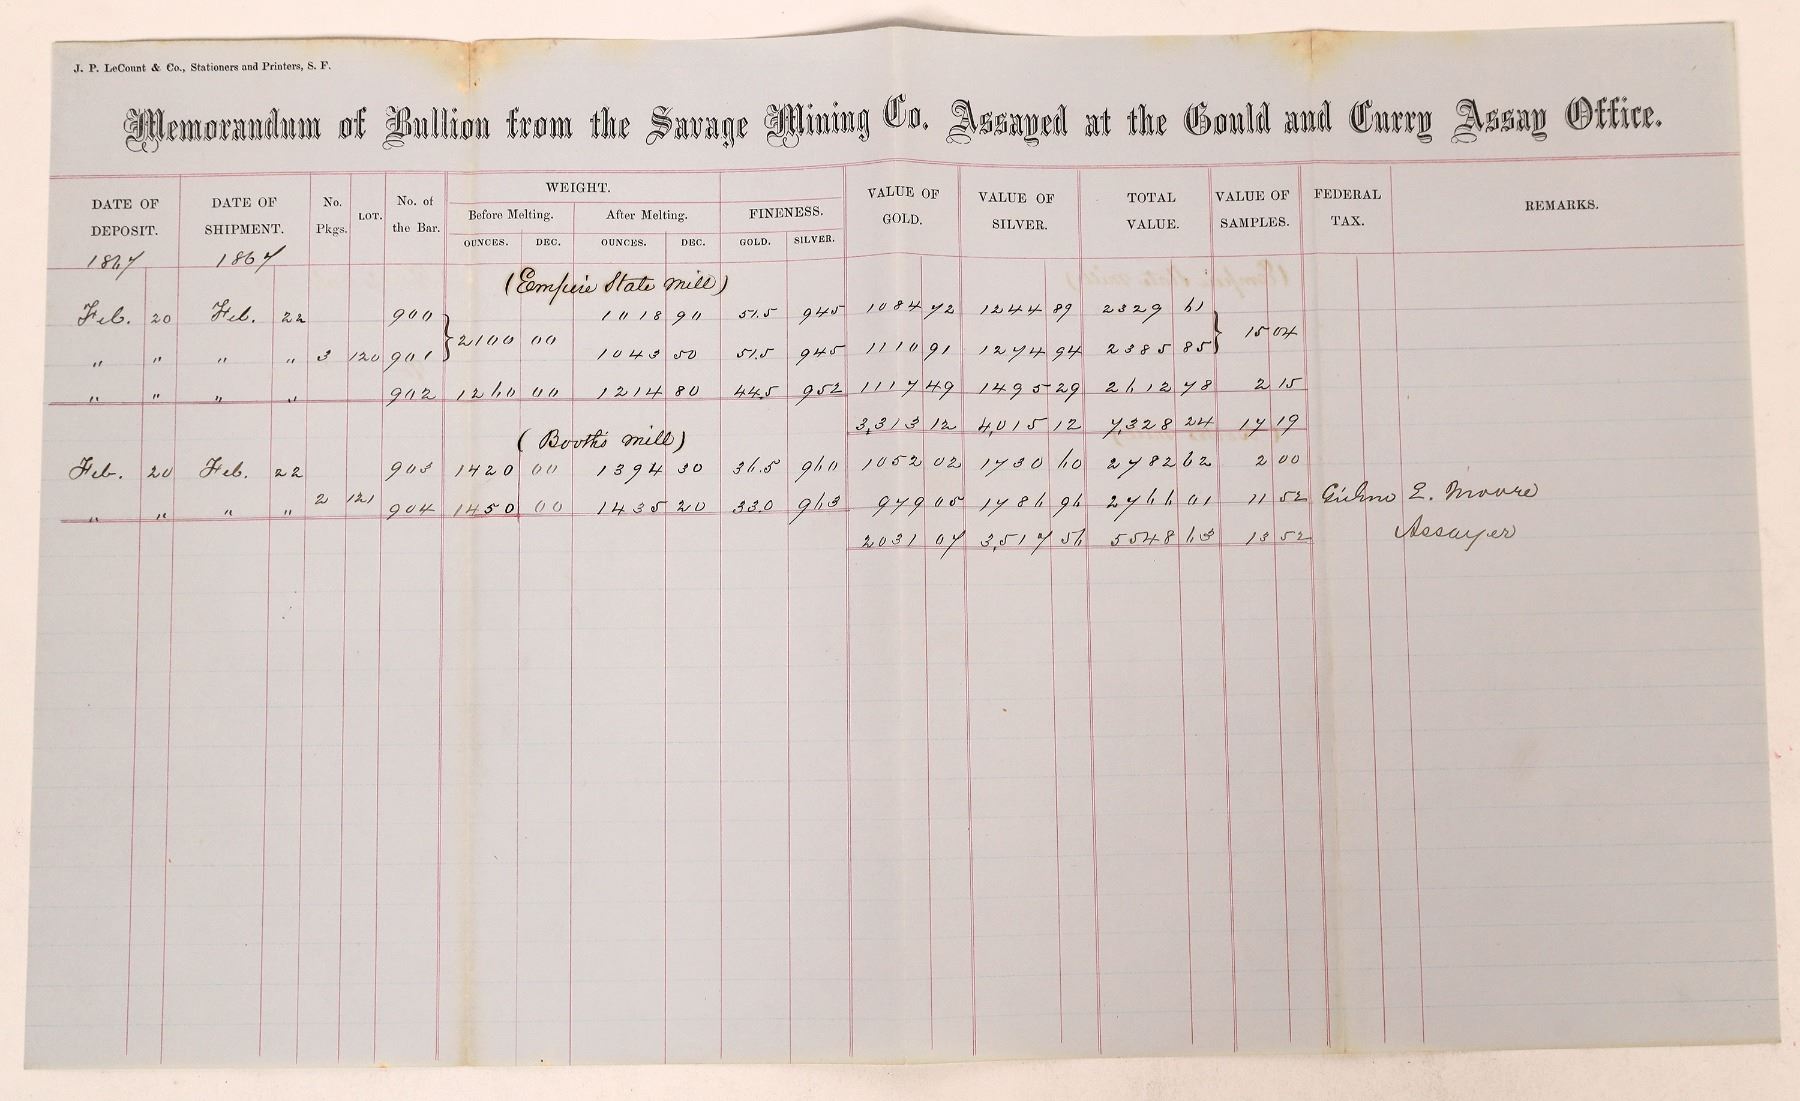 J. P. LeCount & Co., Stationers and Printers, S. F.
Memorandum of Bullion from the Savage Mining Co. Assayed at the Gould and Curry Assay Office.
DATE OF DEPOSIT. DATE OF SHIPMENT. No. Pkgs. LOT. No. of the Bar. WEIGHT. FINENESS. VALUE OF GOLD. VALUE OF SILVER. TOTAL VALUE. VALUE OF SAMPLES. FEDERAL TAX. REMARKS.
Before Melting. After Melting.
OUNCES. DEC. OUNCES. DEC. GOLD. SILVER.
1867 1867
(Empire State Mill)
Feb. 20 Feb. 22 900 1018 90 51.5 945 1084 72 1244 89 2329 61
2100 00 15 04
" " " " 3 120 901 1043 50 51.5 945 1110 91 1274 94 2385 85
" " " " 902 1260 00 1214 80 44.5 952 1117 49 1495 29 2612 78 2 15
3,313 12 4,015 12 7,328 24 17 19
(Booth's Mill)
Feb. 20 Feb. 22 903 1420 00 1394 30 36.5 960 1052 02 1730 60 2782 62 2 00
" " " " 2 121 904 1450 00 1435 20 33.0 963 979 05 1786 96 2766 01 11 52 Gideon E. Moore
2031 07 3,517 56 5548 63 13 52 Assayer